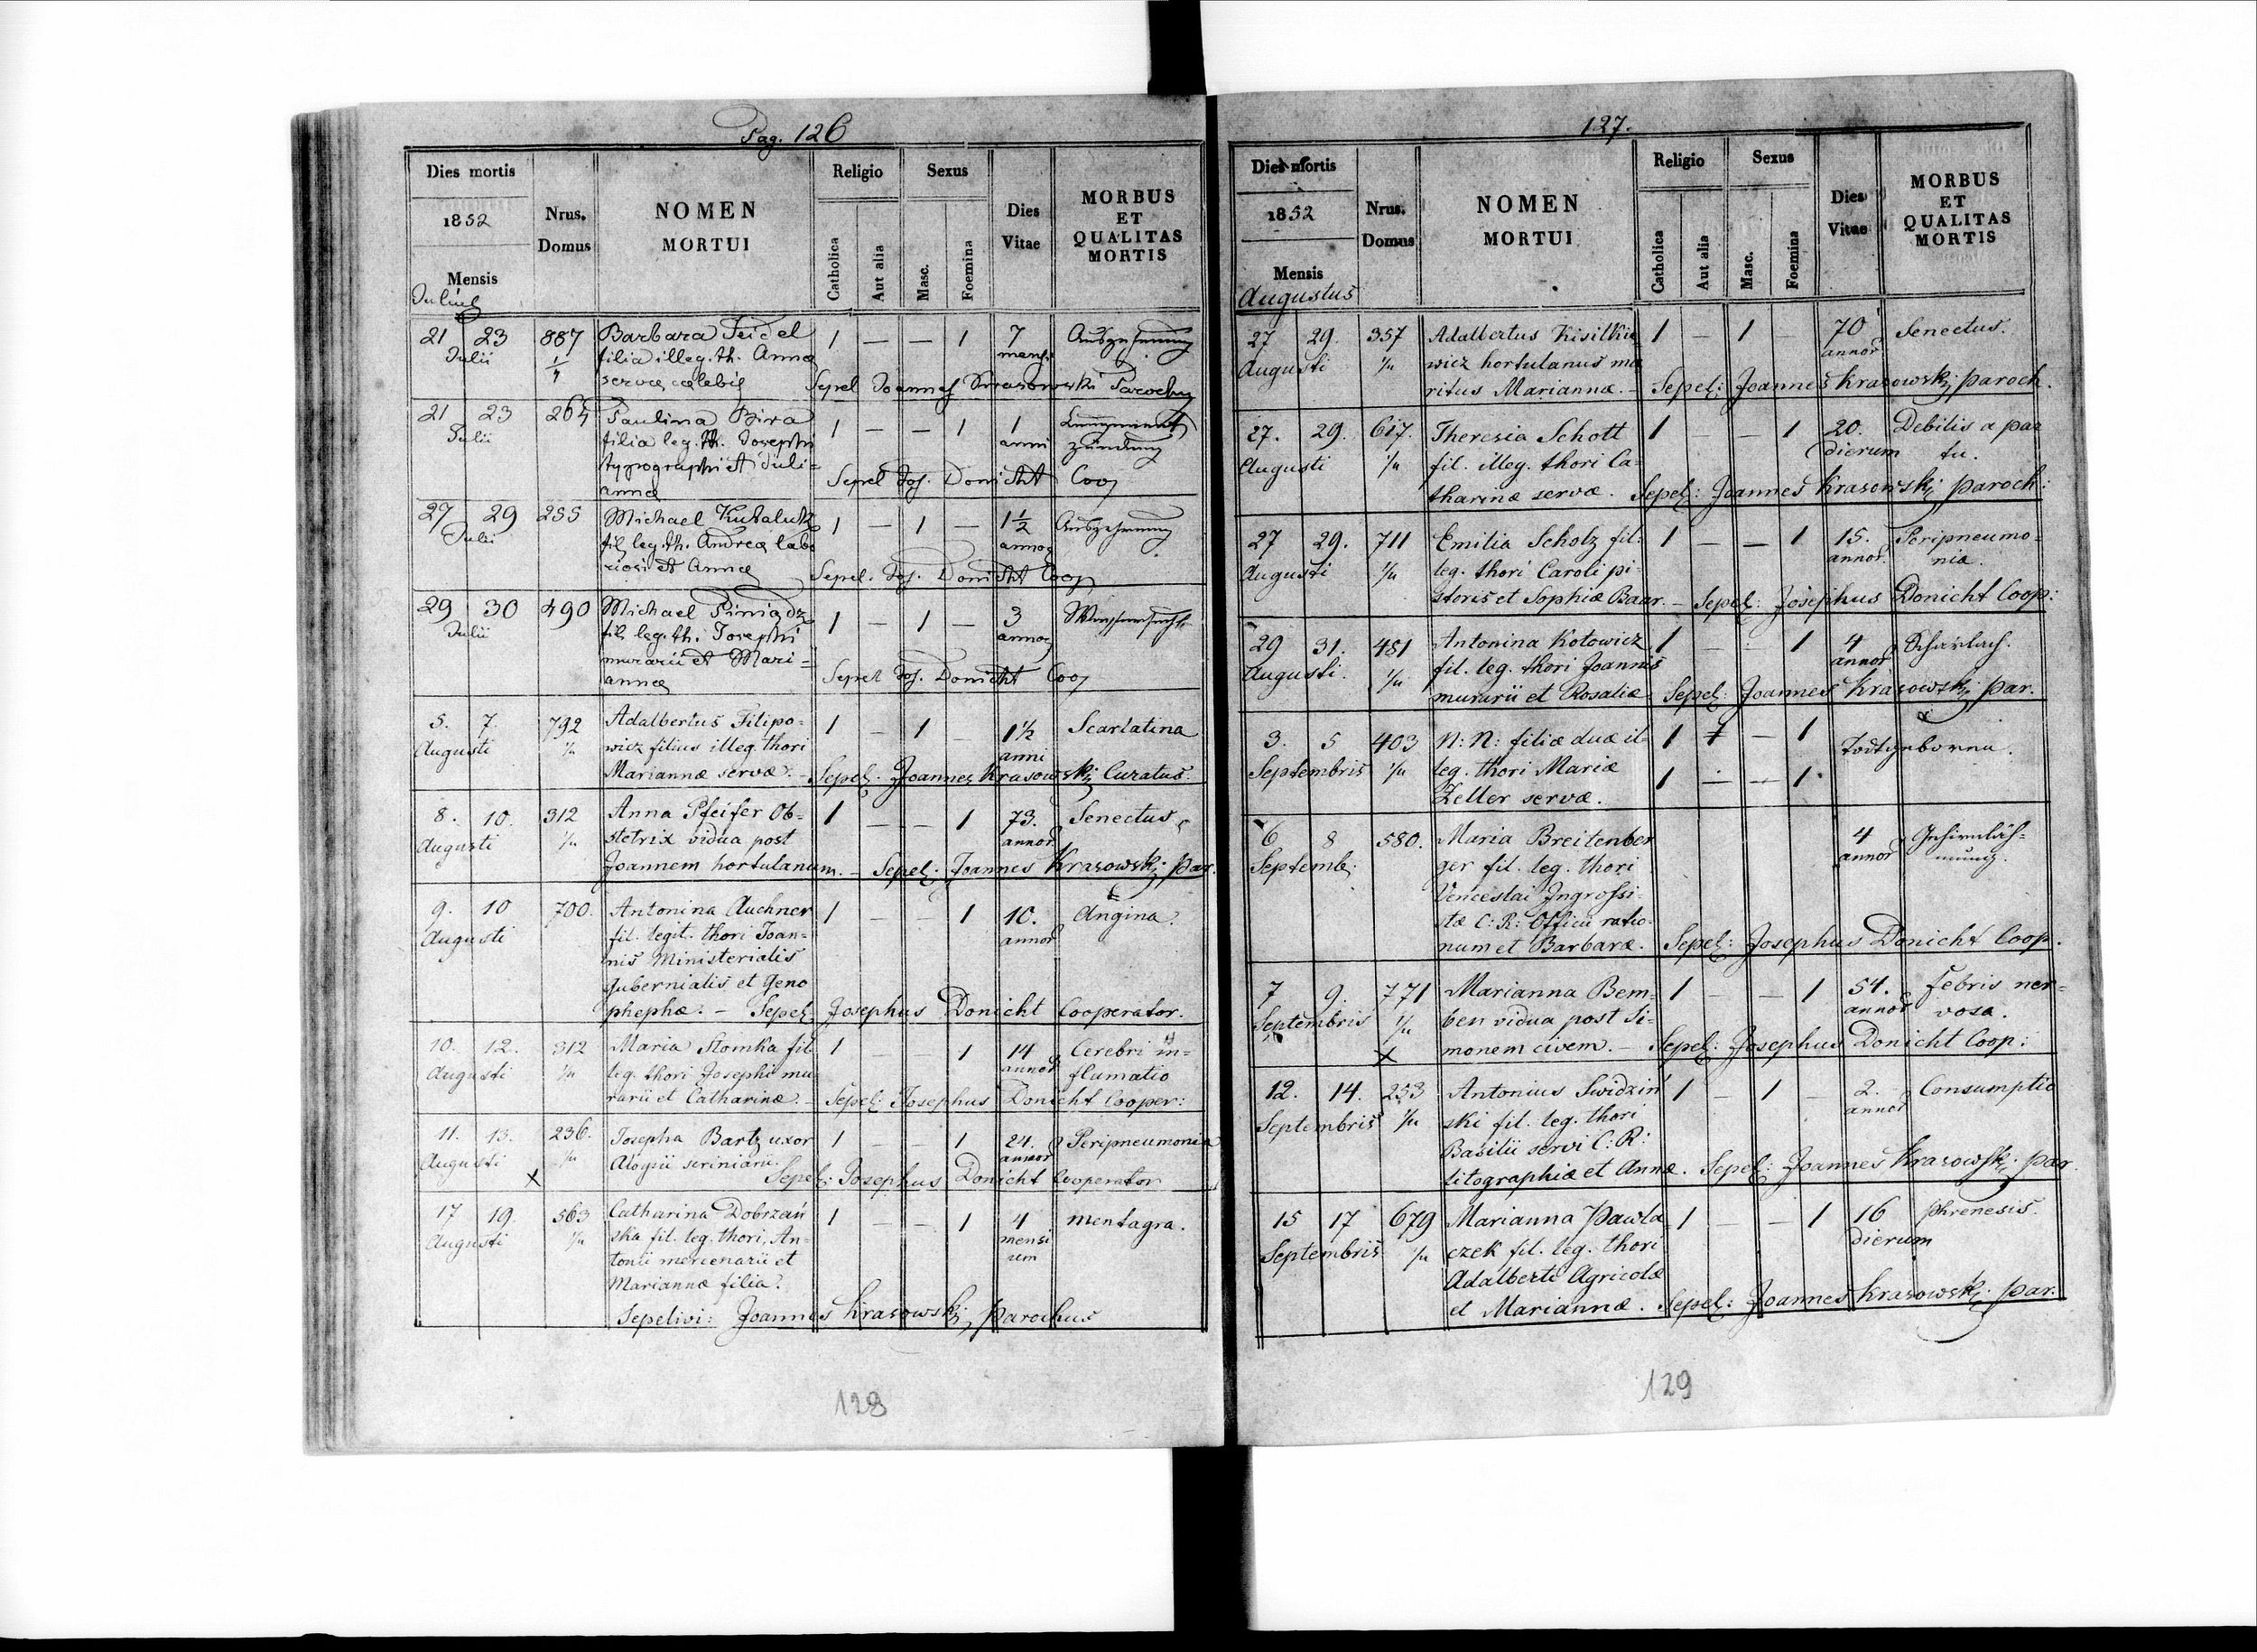 Pag. 126
Dies mortis
1852
Mensis
Julius
Nrus. Domus
NOMEN MORTUI
Religio
Catholica
Aut alia
Sexus
Masc.
Foemina
Dies Vitae
MORBUS ET QUALITAS MORTIS
21 23 887 Barbara Seidel 1 — — 1 7 Auszehrung
Julii 1/4 filia illeg. th. Annæ mens.
servæ cælebis Sepel Joannes Krasowski Parochus
21 23 264 Paulina 1 — — 1 1 Lungenent
Julii filia leg. th. Josephi anni zündung
typographi et Juli=
annæ Sepel Jos. Donicht Coop
27 29 255 Michael 1 — 1 — 1½ Auszehrung
Julii fil. leg. th. Andreæ labo annor
riosi et Annæ Sepel. Jos. Donicht Coop
29 30 490 Michael 1 — 1 — 3 Wassersucht
Julii fil. leg. th. Josephi annor
murarii et Mari=
annæ Sepel Jos. Donicht Coop
5. 7. 792 Adalbertus Filipo= 1 — 1 — 1½ Scarlatina
Augusti 1/4 wicz filius illeg. thori anni
Mariannæ servæ. — Sepel: Joannes Krasowski Curatus.
8. 10. 312 Anna Pfeifer Ob= 1 — — 1 73. Senectus
Augusti 1/4 stetrix vidua post annor
Joannem hortulanum. — Sepel: Joannes Krasowski Par.
9. 10 700. Antonina Auchner 1 — — 1 10. Angina
Augusti fil. legit. thori Joan= annor
nis Ministerialis
gubernialis et Geno
phephæ. — Sepel. Josephus Donicht Cooperator.
10. 12. 312 Maria Słomka fil. 1 — — 1 14 Cerebri in=
Augusti 1/4 leg. thori Josephi mu annor flamatio
rarii et Catharinæ. — Sepel: Josephus Donicht Cooper:
11. 13. 236. Josepha Bartz uxor 1 — — 1 24. Peripneumonia
Augusti 1/4 Aloysii scriniarii. annor
x Sepel: Josephus Donicht Cooperator
17 19. 563 Catharina Dobrzań 1 — — 1 4 mentagra.
Augusti 1/4 ska fil. leg. thori, An= mensi
tonii mercenarii et rum
Mariannæ filia.
Sepelivi: Joannes Krasowski, Parochus
128
127.
Dies mortis
1852
Mensis
Augustus
Nrus. Domus
NOMEN MORTUI
Religio
Catholica
Aut alia
Sexus
Masc.
Foemina
Dies Vitae
MORBUS ET QUALITAS MORTIS
27 29. 357 Adalbertus Kisilkie 1 — 1 — 70 Senectus.
Augusti 1/4 wicz hortulanus ma annor
ritus Mariannæ. — Sepel: Joannes Krasowski, Paroch.
27. 29. 617. Theresia Schott 1 — — 1 20. Debilis a par
Augusti 1/4 fil. illeg. thori Ca= dierum tu.
tharinæ servæ. Sepel: Joannes Krasowski Paroch:
27 29. 711 Emilia Scholz fil: 1 — — 1 15. Peripneumo=
Augusti 1/4 leg. thori Caroli pi= annor. nia.
storis et Sophiæ Baar. — Sepel: Josephus Donicht Coop:
29 31. 481 Antonina Kotowicz 1 — — 1 4 Scharlach.
Augusti. 1/4 fil. leg. thori Joannis annor
murarii et Rosaliæ Sepel: Joannes Krasowski, Par.
3. 5 403 N: N: filiæ duæ il= 1 — — 1 Todtgeboren.
Septembris 1/4 leg. thori Mariæ 1 — — 1
Zeller servæ.
6 8 580. Maria Breitenber 4 Gehirnläh=
Septemb: ger fil. leg. thori annor mung.
Venceslai Ingrossi=
stæ C: R: Officii ratio=
num et Barbaræ. Sepel: Josephus Donicht Coop.
7 9. 771 Marianna Bem= 1 — — 1 54. Febris ner=
Septembris 1/4 ben vidua post Si= annor vosa.
x monem civem. — Sepel: Josephus Donicht Coop:
12. 14. 253 Antonius Swidziń 1 — 1 — 2. Consumptio
Septembris 1/4 ski fil. leg. thori annor
Basilii servi C: R:
litographiæ et Annæ. Sepel: Joannes Krasowski, Par.
15 17 679 Marianna Pawla 1 — — 1 16 Phrenesis.
Septembris 1/4 czek fil. leg. thori dierum
Adalberti Agricolæ
et Mariannæ. Sepel: Joannes Krasowski, Par.
129